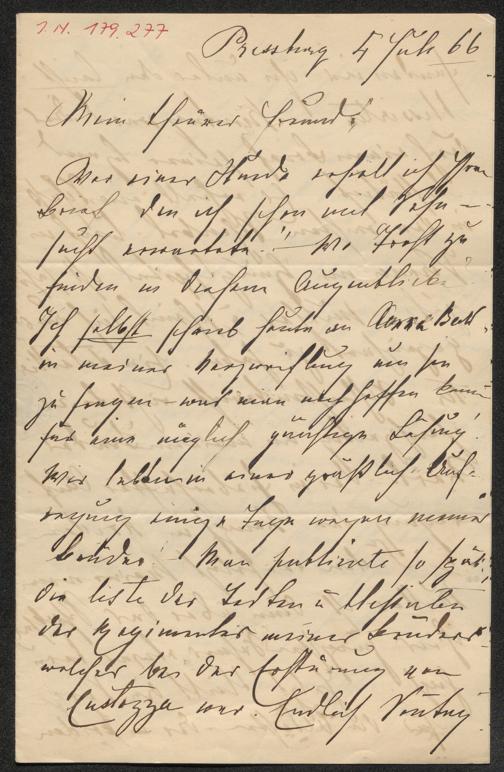 I. N. 179.277
Pressburg 5 Juli 66
Mein theurer Freund!
Vor einer Stunde erhielt ich Ihren
Brief den ich schon mit Sehn-
sucht erwartete! – Wo Trost zu
finden in diesem Augenblicke
Ich selbst schrieb heute an Anna
in meiner Verzweiflung um sie
zu fragen – was man noch hoffen kann
für eine möglich günstige Lösung!
Wir leben in einer gräßlich Auf-
regung einige Tage wegen meines
Bruders! – Man publicirte so spät
die Liste der Todten u Blessirten
des Regimentes meines Bruders
welcher bei der Erstürmung von
Custozza war. Endlich Sontag